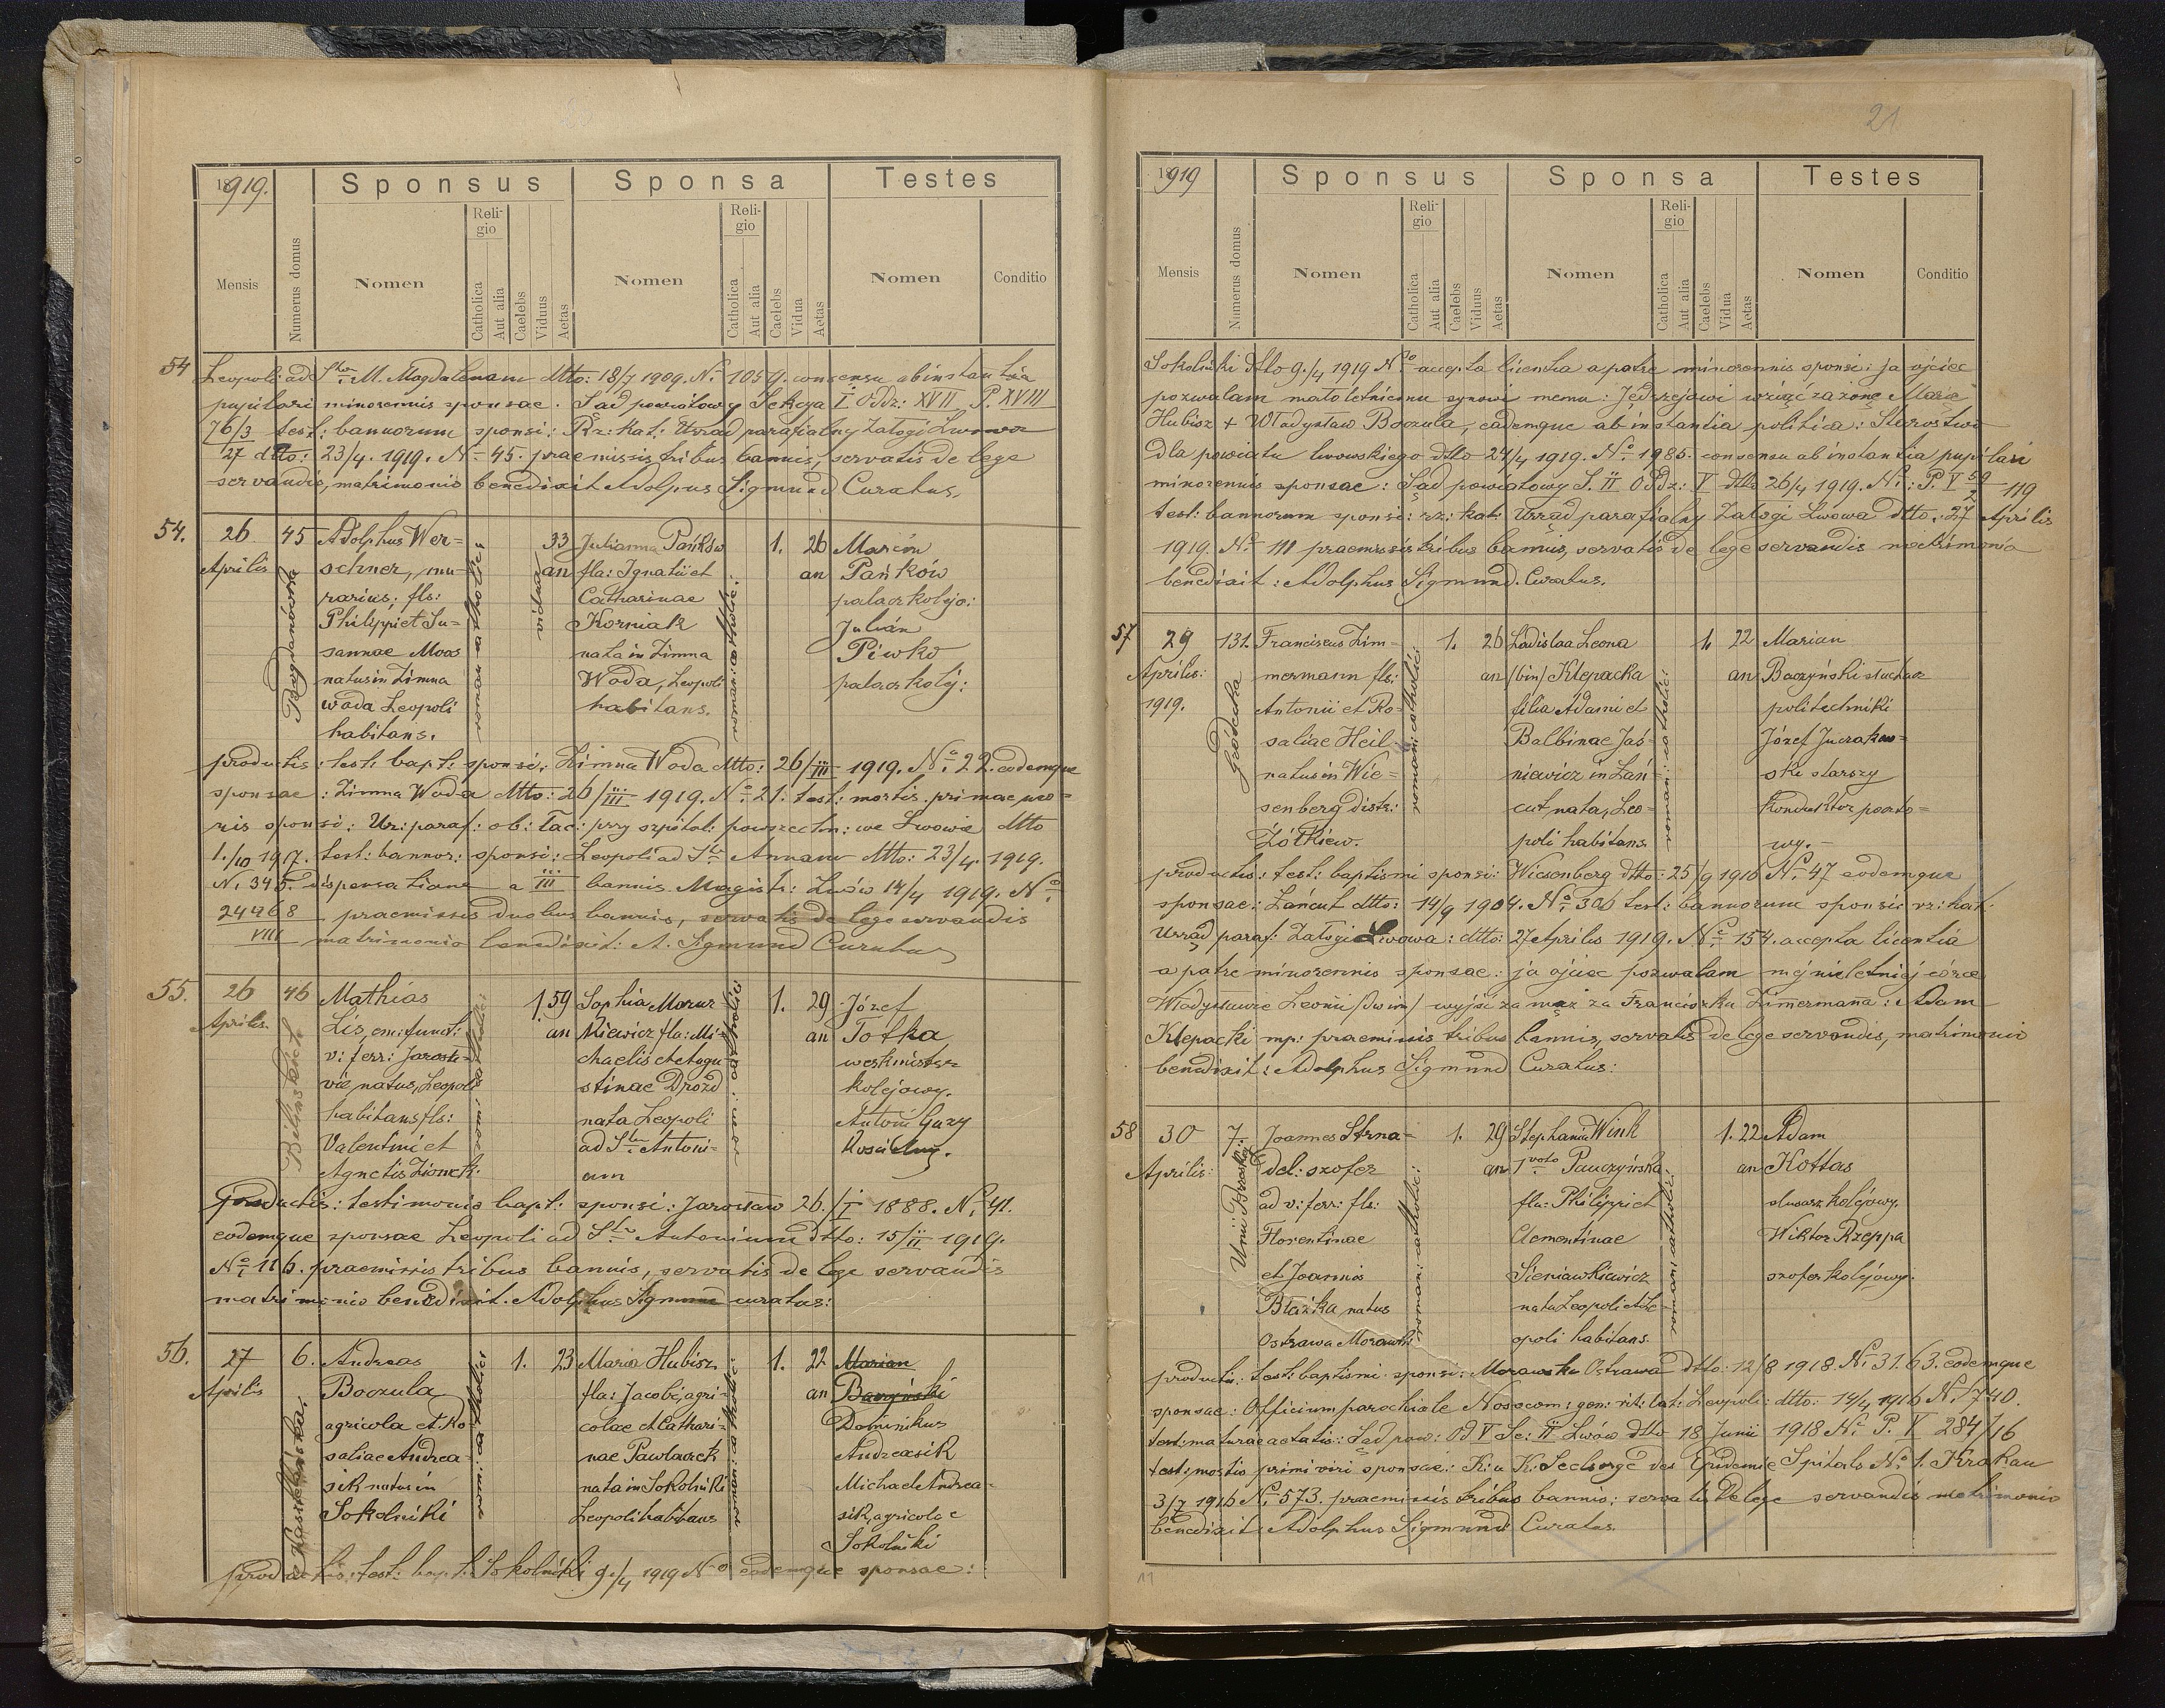 1919.
Sponsus Sponsa Testes
Mensis Numerus domus Nomen Religio Catholica Aut alia Caelebs Viduus Aetas Nomen Religio Catholica Aut alia Caelebs Vidua Aetas Nomen Conditio
54 Leopoli ad Stam M. Magdalenam dtto: 18/7 1909. No 1059. consensu ab instantia
pupilari minorennis sponsae. Sąd powiatowy Sekcya I Oddz: XVII P. XVIII
76/3 test: bannorum sponsi: Rz: kat: Urząd parafialny Załogi Lwowa
27 dtto: 23/4. 1919. No 45. praemissis tribus bannis, servatis de lege
servandis, matrimonio benedixit Adolphus Sigmund Curatus.
54. 26 45 Adolphus Wer= 33 Julianna Pańków 1. 26 Marcin
Aprilis schner, mu= an fla: Ignatii et an Pańków
rarius; fls: Catharinae palacz kolejo:
Philippi et Su= Korniak Julián
sannae Moos nata in Zimna Piwko
natus in Zimna Woda, Leopoli palacz kolej:
woda Leopoli habitans.
habitans.
Bogdanówka
roman: catholic:
viduus
roman: catholic:
productis: test: bapt: sponsi: Zimna Woda dtto: 26/III 1919. No 22. eodemque
sponsae: Zimna Woda dtto: 26/III 1919. No 21: test: mortis primae uxo=
ris sponsi: Urz: paraf: ob: łac: przy szpital: powszechn: we Lwowie dtto
1./10 1917. test: bannor: sponsi: Leopoli ad Stam Annam dtto: 23/4. 1919.
N. 345. dispensatione a III bannis Magistr: Lwów 14/4 1919. No
24468/VIII praemissis duobus bannis, servatis de lege servandis
matrimonio benedixit: A. Sigmund Curatus
55. 26 46 Mathias 1. 59 Sophia Mazur 1. 29 Józef
Aprilis. Lis, em: funct: an kiewicz fla: Mi= an Totka
v: ferr: Jarosła= chaelis et Augu= werkmistrz
vie natus, Leopoli stinae Drozd kolejowy.
habitans fls: nata Leopoli Antoni Gazy
Valentini et ad Stum Antoni= Kościelny.
Agnetis Zionek: um
rom: catholic:
rom: catholic:
Productis: testimonio bapt: sponsi: Jarosław 26./I 1888. No 41.
eodemque sponsae Leopoli ad Stum Antonium dtto: 15/II 1919.
No 116. praemissis tribus bannis, servatis de lege servandis
matrimonio benedixit. Adolphus Sigmund curatus:
56. 27 6. Andreas 1. 23 Maria Hubisz 1. 22 Marian
Aprilis Boczula fla: Jacobi, agri= an Baczyński
agricola et Ro= colae et Cathari= Dominikus
saliae Andrea= nae Pawlaczek Andreasik
sik natus in nata in Sokolniki Michael Andrea=
Sokolniki Leopoli habitans sik, agricolae
Sokolniki
rom: catholic:
roman: catholic:
productis: test: bapt: Sokolniki 9./4 1919 No eodemque sponsae:
21
1919
Sponsus Sponsa Testes
Mensis Numerus domus Nomen Religio Catholica Aut alia Caelebs Viduus Aetas Nomen Religio Catholica Aut alia Caelebs Vidua Aetas Nomen Conditio
Sokolniki dtto 9./4 1919 No accepta licentia a patre minorennis sponsi: ja ojciec
pozwalam małoletniemu synowi memu: Jędrzejowi wziąć za żonę Maria
Hubisz + Władysław Boczula, eademque ab instantia politica: Starostwo
dla powiatu lwowskiego dtto 24/4 1919. No 1985. consensu ab instantia pupilari
minorennis sponsae: Sąd powiatowy S. II Oddz: V dtto 26/4 1919. No: P. V 59/2 119
test: bannorum sponsi: rz: kat: Urząd parafialny Załogi Lwowa dtto: 27 Aprilis
1919. No 111 praemissis tribus bannis, servatis de lege servandis matrimonio
benedixit: Adolphus Sigmund. Curatus.
57 29 131. Franciscus Zim= 1. 26 Ladislaa Leona 1. 22 Marian
Aprilis: mermann fls: an (bin) Klepacka an Baczyński słuchacz
1919. Antonii et Ro= filia Adami et politechniki
saliae Heil Balbinae Jaś= Józef Juczakow=
natus in Wie= niewicz in Łań= ski starszy
senberg distr: cut nata, Leo= konduktor poczto=
Żółkiew. poli habitans. wy.
Gródecka
roman: catholic:
roman: catholic:
productis: test: baptismi sponsi: Wiesenberg dtto: 25/9 1916 No 47 eodemque
sponsae: Łańcut dtto: 14/9 1904. No 306 test: bannorum sponsi: rz: kat:
Urząd paraf: Załogi Lwowa: dtto: 27 Aprilis 1919. No 154. accepta licentia
a patre minorennis sponsae: ja ojciec pozwalam mej nieletniej córce
Władysławie Leonii (dwim) wyjść za mąż za Franciszka Zimermana: Adam
Klepacki mp: praemissis tribus bannis, servatis de lege servandis, matrimonio
benedixit: Adolphus Sigmund Curatus:
58 30 7. Joannes Strna= 1. 29 Stephania Wink 1. 22 Adam
Aprilis: del: szofer an 1voto Panczyńska an Kottas
ad v: ferr: fls: fla: Philippi et slusarz kolejowy.
Florentinae Clementinae Wiktor Rzeppa
et Joannis Sieniawkiewicz szofer kolejowy.
Błażka natus nata Leopoli et Le=
Ostrawa Morawski opoli habitans.
roman: catholic:
roman: catholic:
productis: test: baptismi sponsi: Morawska Ostrawa dtto: 12/8 1918. No 3163. eodemque
sponsae: Officium parochiale Nosocom: gen: rit: lat: Leopoli: dtto: 14/4 1916 No 740.
test: maturae aetatis: Sąd pow: Od V Se: II Lwów dtto 18 Junii 1918 No P. V 284/16
test: mortis primi viri sponsae: K: u K: Seelsorge des Epidemie Spitals No 1. Krakau
3/7 1916 No 573. praemissis tribus bannis; servatis de lege servandis matrimonio
benedixit: Adolphus Sigmund Curatus.
11